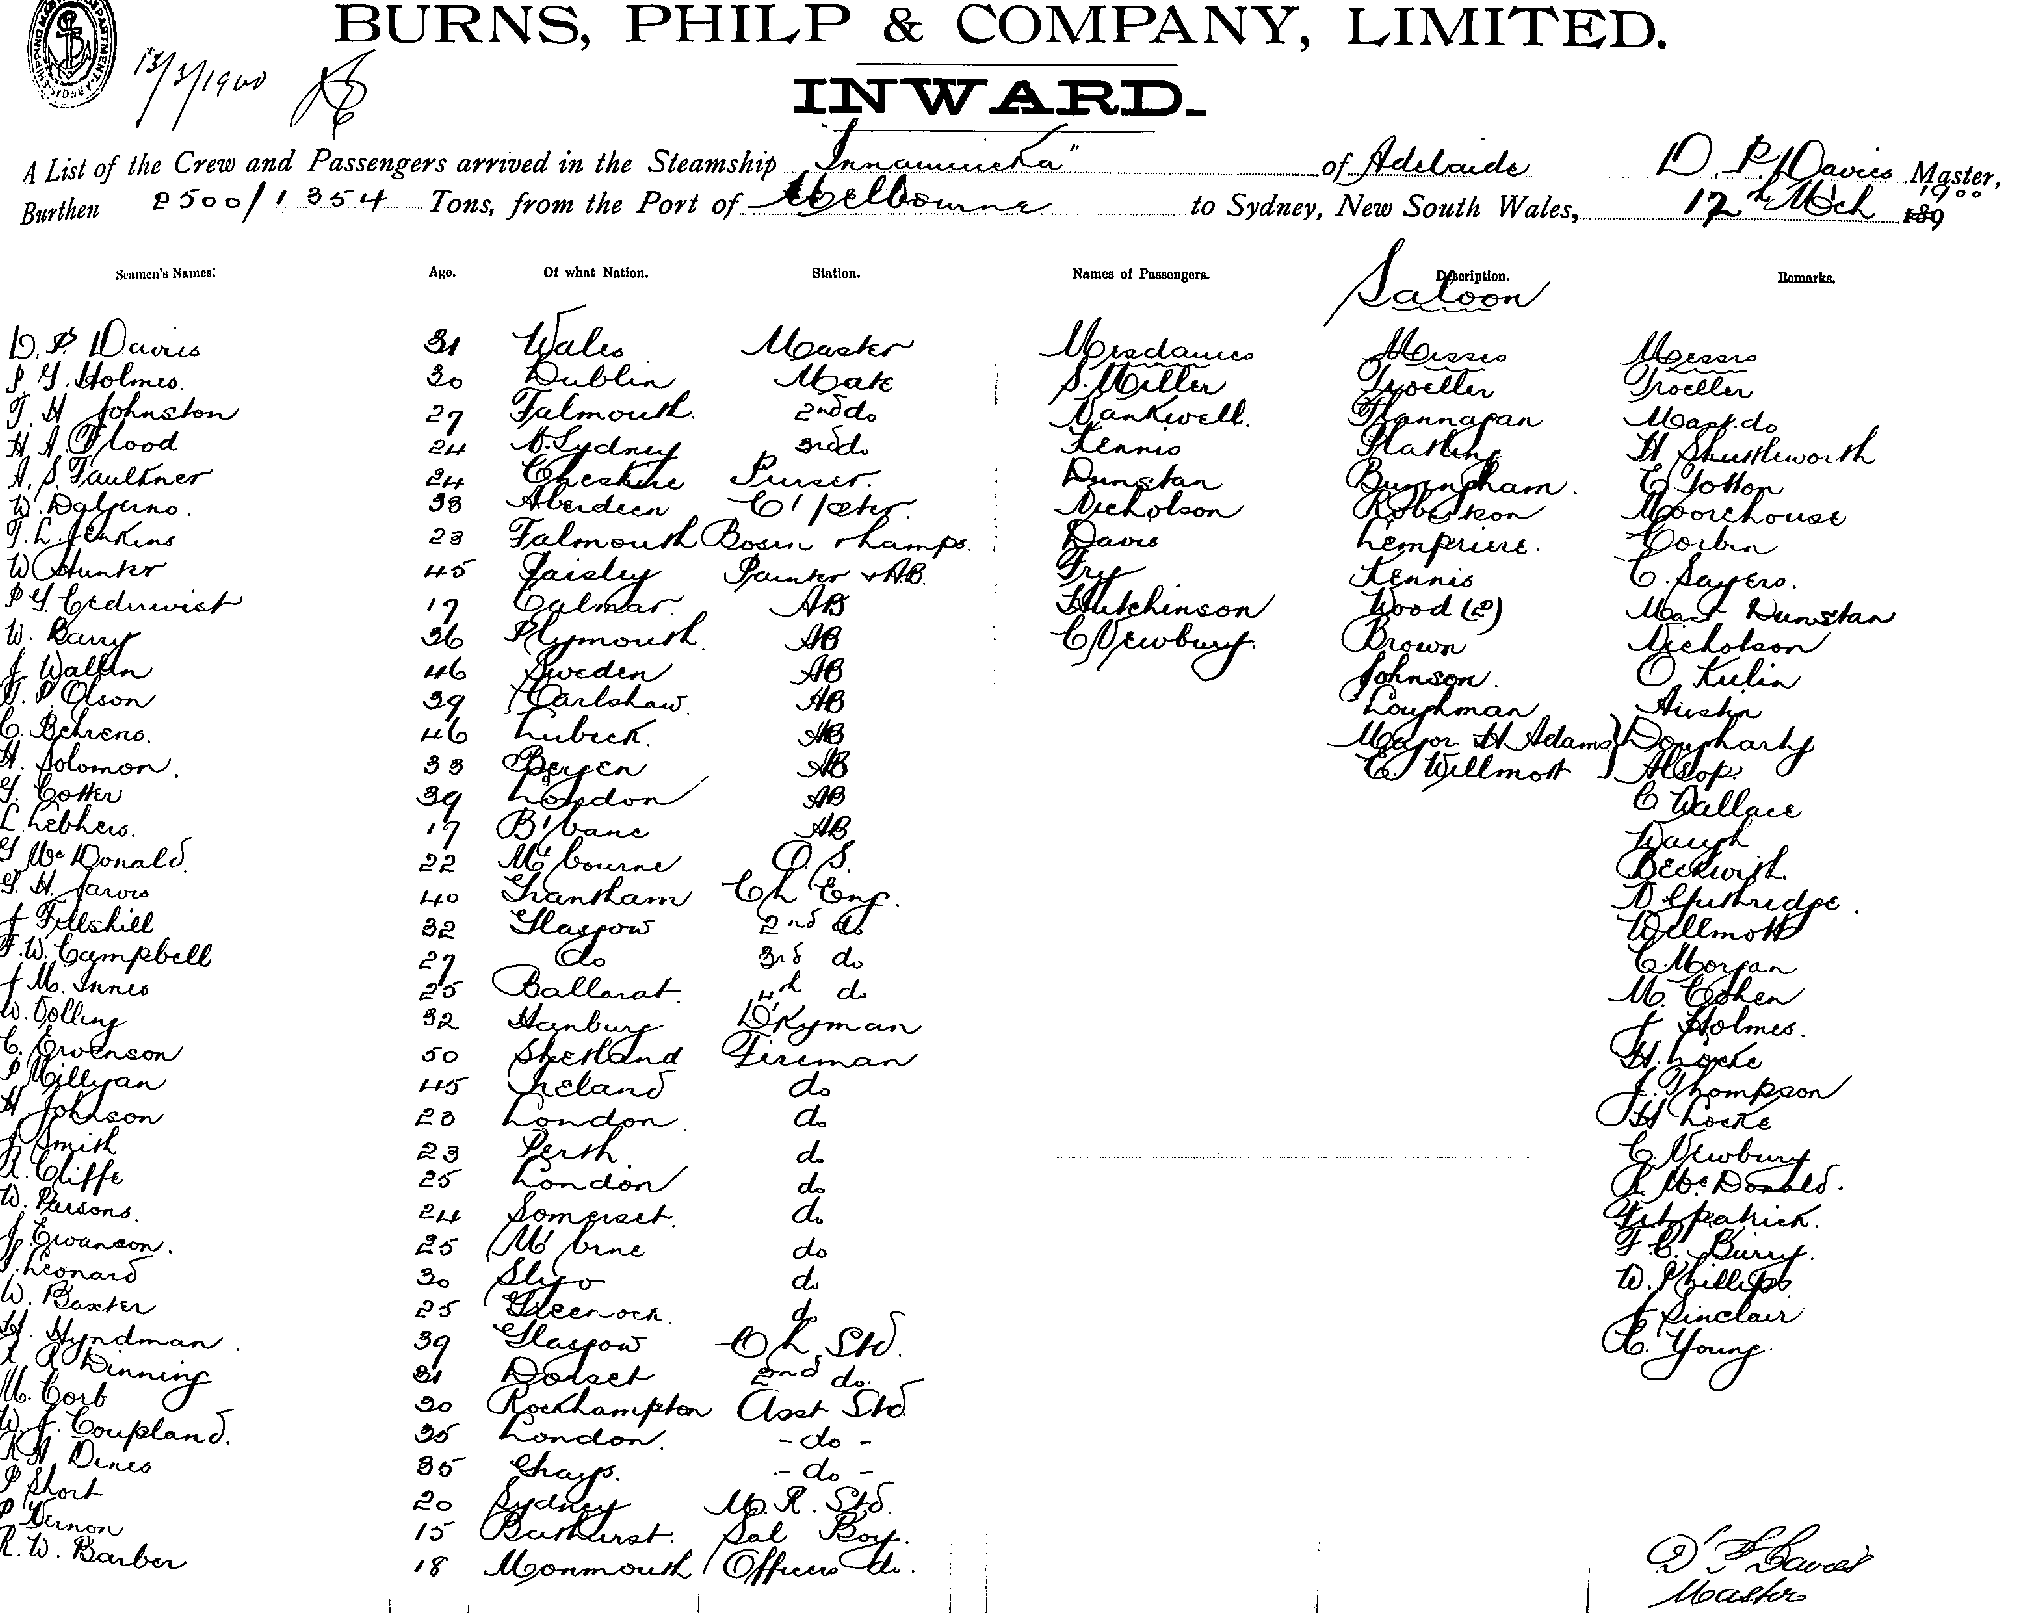 BURNS, PHILP & COMPANY, LIMITED.
13/3/1900
INWARD.
A List of the Crew and Passengers arrived in the Steamship "Innamincka" of Adelaide D. P. Davies Master,
Burthen 2500/1354 Tons, from the Port of Melbourne to Sydney, New South Wales, 12th Mch 1900 189
Seamen's Names. Age. Of what Nation. Station. Names of Passengers. Description. Remarks.
Saloon
D. P. Davies 31 Wales Master Mesdames Misses Messrs
P. G. Holmes. 30 Dublin Mate S. Miller Troeller Troeller
T. H. Johnston 27 Falmouth. 2nd do Bankwell. Flannagan Mast. do
H. A. Flood 24 N. Sydney 3rd do Kennis Flatling H Shuttleworth
A. S. Faulkner 24 Cheshire Purser. Dunstan Burningham. C Totton
W. Dalgerno. 38 Aberdeen C'pster. Nicholson Robertson Moorehouse
T. L. Jenkins 23 Falmouth Bosun & Lamps. Davis Lempriere. Corbin
W Hunter 45 Paisley Painter & AB. Fry Kennis C. Sayers.
P G. Cederwist 17 Calmar. AB Hutchinson Wood (2) Mast Dunstan
W. Barry 36 Plymouth. AB C Newbury. Brown Nicholson
J. Wallin 46 Sweden AB Johnson. O Kulin
G. P. Olson 39 Carlshaw. AB Loughman Austin
C. Behrens. 46 Lubeck. AB Major H Adams Dougharty
H. Solomon. 33 Bergen AB C. Willmott Alsop.
G. Cotter 39 London AB C Wallace
L. Lebhers. 17 B'bane AB Waugh
G McDonald. 22 M'bourne O.S. Beckwith.
G. H. Jarvis 40 Grantham Ch Eng. D Guthridge.
J Fellskill 32 Glasgow 2nd do Willmott
F. W. Campbell 27 do 3rd do C. Morgan
J M. Innes 25 Ballarat. 4th do M. Cohen
W. Colling 32 Hanbury D'kyman J Holmes.
C. Ewenson 50 Shetland Fireman H. Locke
P Milligan 45 Ireland do J. Thompson
H Johnson 23 London. do H Locke
J Smith 23 Perth do C. Newbury
A. Cliffe 25 London do R McDonald.
W. Parsons. 24 Somerset. do Fitzpatrick.
J. Ewanson. 25 M'brne do F C. Burry.
Leonard 30 Sligo do W. Phillips
W. Baxter 25 Greenock. do J Sinclair
H. Hyndman. 39 Glasgow Ch Std. C. Young.
R Dinning 31 Dorset 2nd do.
M. Corb 30 Rockhampton Asst Std
W. J. Coupland. 35 London. - do -
R H Dines 35 Ghays. - do -
P Short 20 Sydney M. R. Std.
P Vernon 15 Bathurst. Sal Boy.
R. W. Barber 18 Monmouth Officers do.
D P Davies
Master